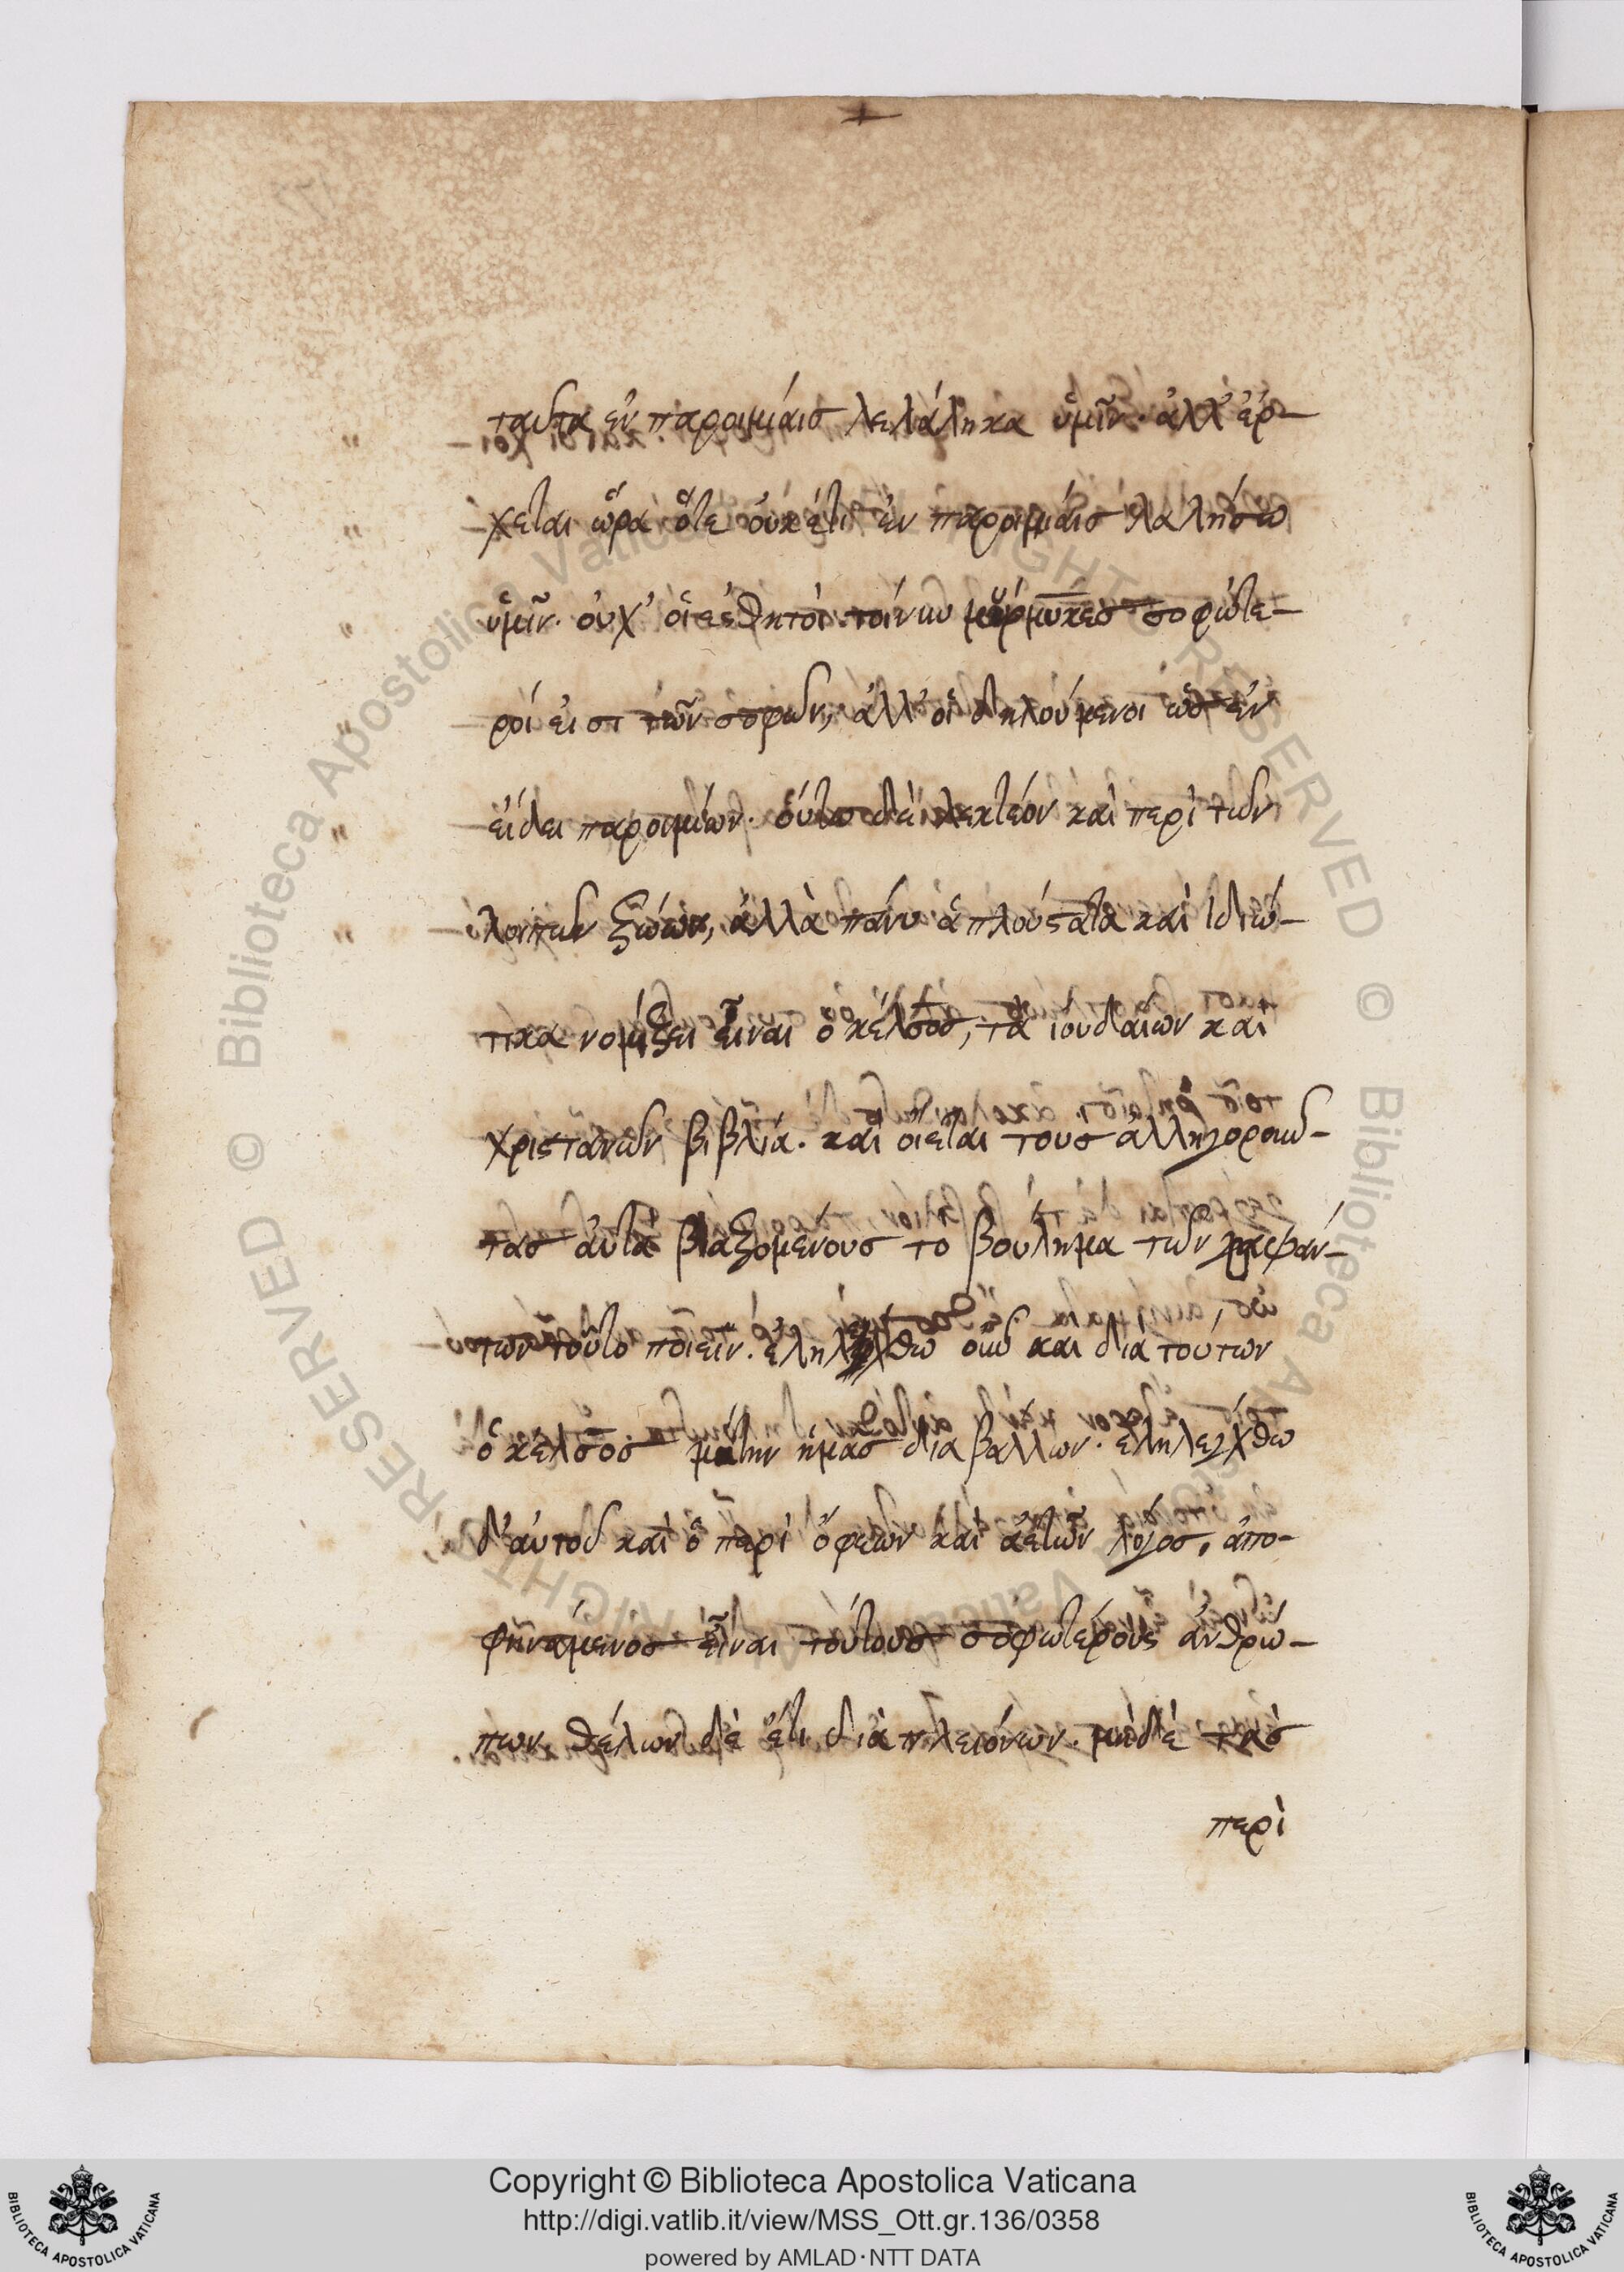 ταῦτα ἐν παροιμίαισ λελάληκα ὑμῖν· ἀλλ' ἔρ-
χεται ὥρα ὅτε οὐκέτι ἐν παροιμίαισ λαλήσω
ὑμῖν· οὐχ' οἱ αἰσθητοὶ τοίνυν μύρμυκεσ σοφώτε-
ροί εἰσι τῶν σοφῶν, ἀλλ' οἱ δηλούμενοι ὡσ ἐν
εἴδει παροιμίων· οὕτω δὲ λεκτέον καὶ περὶ τῶν
λοιπῶν ζώων, ἀλλὰ πάνυ ἁπλούστατα καὶ ἰδιώ-
τικα νομίζει εἶναι ὁ κέλσοσ, τὰ ἰουδαίων καὶ
χριστανῶν βιβλία· καὶ οἴεται τοὺσ ἀλληγοροῦ-
τασ αὐτὰ βιαζομένουσ τὸ βούλημα τῶν γραψάν-
των τοῦτο ποιεῖν· ἐληλέγχθω οὖν καὶ διὰ τούτων
ὁ κέλσοσ μάτην ἡμᾶσ διαβάλλων· ἐληλεγχθω
δ' αὐτοῦ καὶ ὁ περὶ ὄφεων καὶ ἀετῶν λόγοσ, ἀπο-
φηνάμενοσ εἶναι τούτουσ σοφωτέρους ἀνθρώ-
πων. θέλων δὲ ἔτι διὰ πλειόνων· μηδὲ τὰσ
περὶ
Copyright © Biblioteca Apostolica Vaticana
http://digi.vatlib.it/view/MSS_Ott.gr.136/0358
powered by AMLAD·NTT DATA
BIBLIOTECA APOSTOLICA VATICANA
BIBLIOTECA APOSTOLICA VATICANA